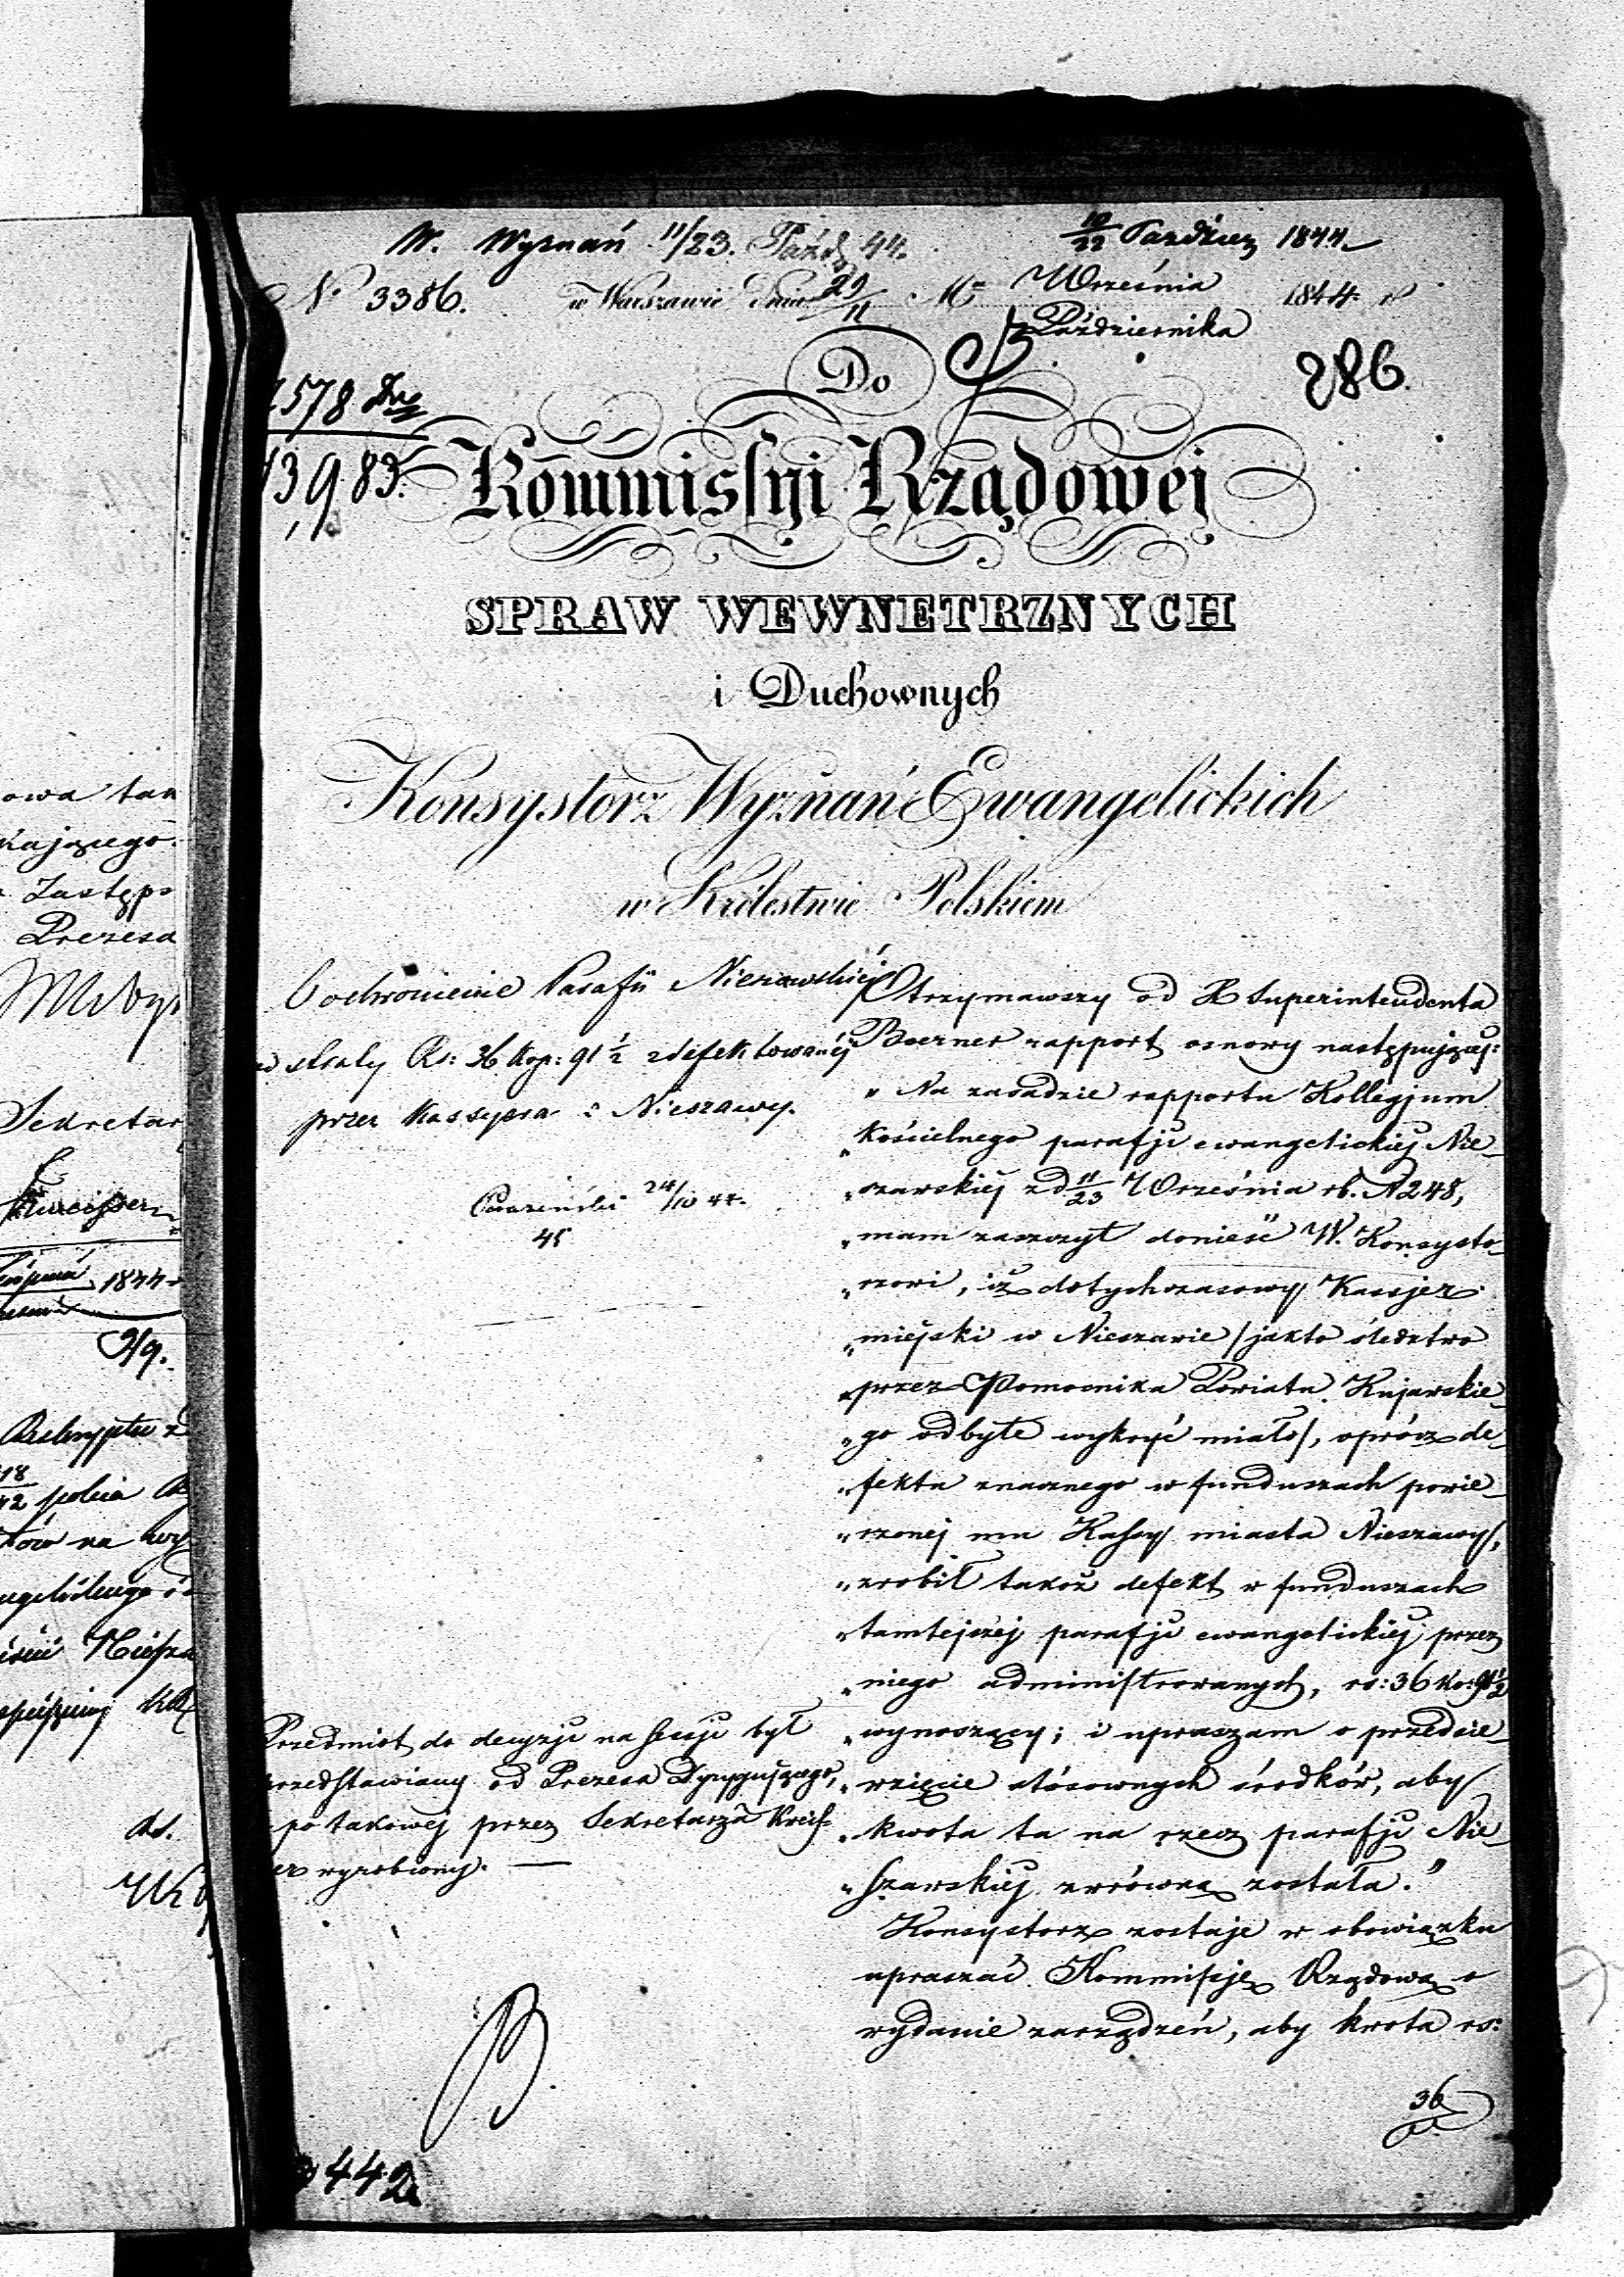 W. Wyznań 11/23. Paźdz 44.
10/22 Paździer 1844
No 3386. w Warszawie dnia 29/11 Mca Września 1844 r
Października
286.
Do
1578
13,983.
Kommissyi Rządowej
SPRAW WEWNETRZNYCH
i Duchownych
Konsystorz Wyznań Ewangelickich
w Królestwie Polskiem
O ochronienie Parafii Nieszawskiéj
od straty Rs: 36 kop: 91 1/2 zdefektowanéj
przez Kassyera z Nieszawy.
24/10 44.
45
Otrzymawszy od X Superintendenta
Boerner rapport osnowy następującej:
„ Na zasadzie rapportu Kollegjum
„ Kościelnego parafji ewangelickiej Nie-
„ szawskiej z d 11/23 Września rb. N 248,
„ mam zaszczyt donieść W. Konsysto-
„ rzowi, iż dotychczasowy Kassjer
„ miejski w Nieszawie /jak to śledztwo
„ przez Pomocnika Powiatu Kujawskie-
„ go odbyte wykryć miało/, oprócz de-
„ fektu znacznego w funduszach powie-
„ rzonej mu Kassy miasta Nieszawy,
„ zrobił także defekt w funduszach
„ tamtejszej parafji ewangelickiej przez
„ niego administrowanych, rs: 36 ko: 91 1/2
„ wynoszący; i upraszam o przedsie-
„ wzięcie stósownych środków, aby
„ kwota ta na rzecz parafji Nie-
„ szawskiej zwróconą została."
Konsystorz zostaje w obowiązku
upraszać Kommissję Rządową o
wydanie zarządzeń, aby kwota rs:
36
Przedmiot do decyzji na sessji był
przedstawiany od Prezesa Dyrygującego,
po takowej przez Sekretarza
wyrobiony. —
442
owa tak
kającego
Zastępo
Prezesa
Sekretarz
1844
9/9.
Reskryptu z
18
42
tów na wy